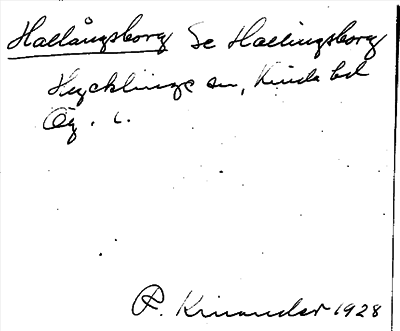 Hallångsborg Se Hallingsborg
Hycklinge sn, Kinda hd
Ög. l.
R. Kinander 1928